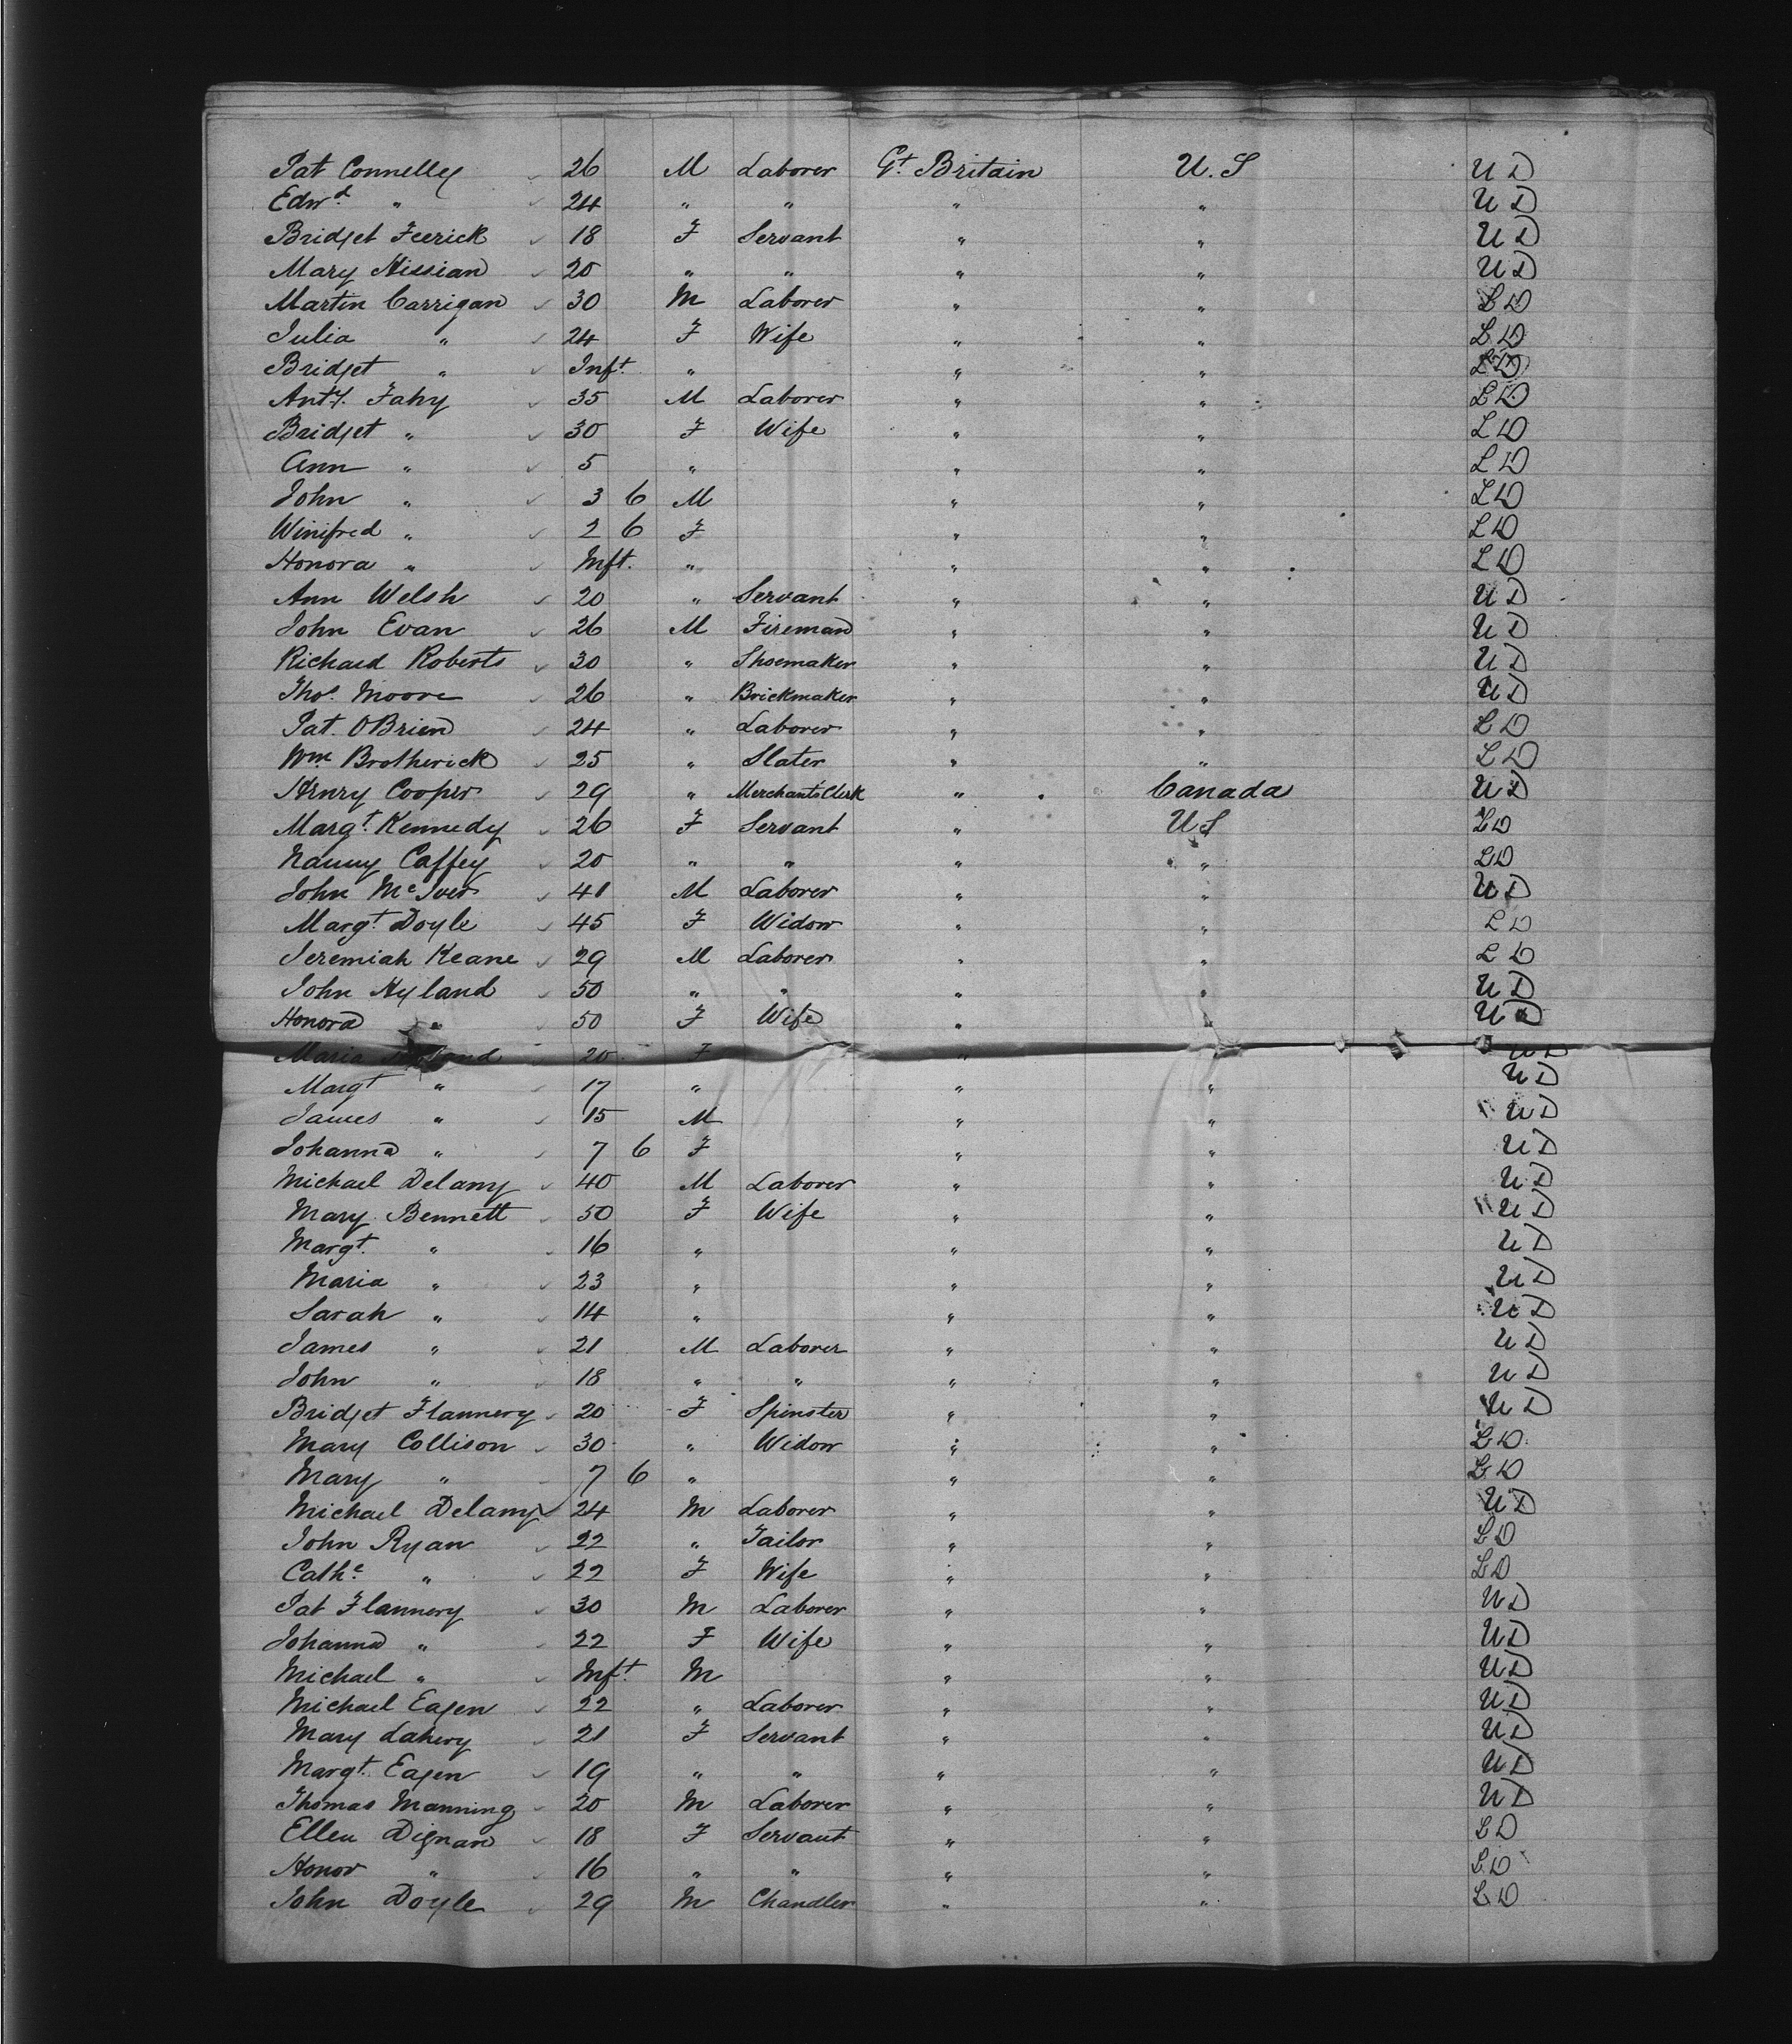 Pat Connelly 26 M Laborer Gt. Britain U.S U D
Edwd. " 24 " " " " U D
Bridget Feerick 18 F Servant " " U D
Mary Hissian 20 " " " " U D
Martin Carrigan 30 M Laborer " " L D
Julia " 24 F Wife " " L D
Bridget " Inft. " " " L D
Anty. Fahy 35 M Laborer " " L D
Bridget " 30 F Wife " " L D
Ann " 5 " " " L D
John " 3 6 M " " L D
Winifred " 2 6 F " " L D
Honora " Inft. " " " L D
Ann Welsh 20 " Servant " " U D
John Evan 26 M Fireman " " U D
Richard Roberts 30 " Shoemaker " " U D
Thos. Moore 26 " Brickmaker " " U D
Pat. OBrien 24 " Laborer " " L D
Wm Brotherick 25 " Slater " " L D
Henry Cooper 29 " Merchants Clerk " Canada U D
Margt. Kennedy 26 F Servant " U S L D
Nanny Caffey 20 " " " " L D
John McIver 41 M Laborer " " U D
Margt. Doyle 45 F Widow " " L D
Jeremiah Keane 29 M Laborer " " L D
John Hyland 50 " " " " U D
Honora " 50 F Wife " " U D
Maria 20 F " U D
Margt " 17 " " " U D
James " 15 M " " U D
Johanna " 7 6 F " " U D
Michael Delany 40 M Laborer " " U D
Mary Bennett 50 F Wife " " U D
Margt. " 16 " " " U D
Maria " 23 " " " U D
Sarah " 14 " " " U D
James " 21 M Laborer " " U D
John " 18 " " " " U D
Bridget Flannery 20 F Spinster " " U D
Mary Collison 30 " Widow " " L D
Mary " 7 6 " " " L D
Michael Delany 24 M Laborer " " U D
John Ryan 22 " Tailor " " L D
Cathe " 22 F Wife " " L D
Pat Flannery 30 M Laborer " " U D
Johanna " 22 F Wife " " U D
Michael " Inft. M " " U D
Michael Eagen 22 " Laborer " " U D
Mary Lahery 21 F Servant " " U D
Margt. Eagen 19 " " " " U D
Thomas Manning 20 M Laborer " " U D
Ellen Dignan 18 F Servant " " L D
Honor " 16 " " " " L D
John Doyle 29 M Chandler " " L D